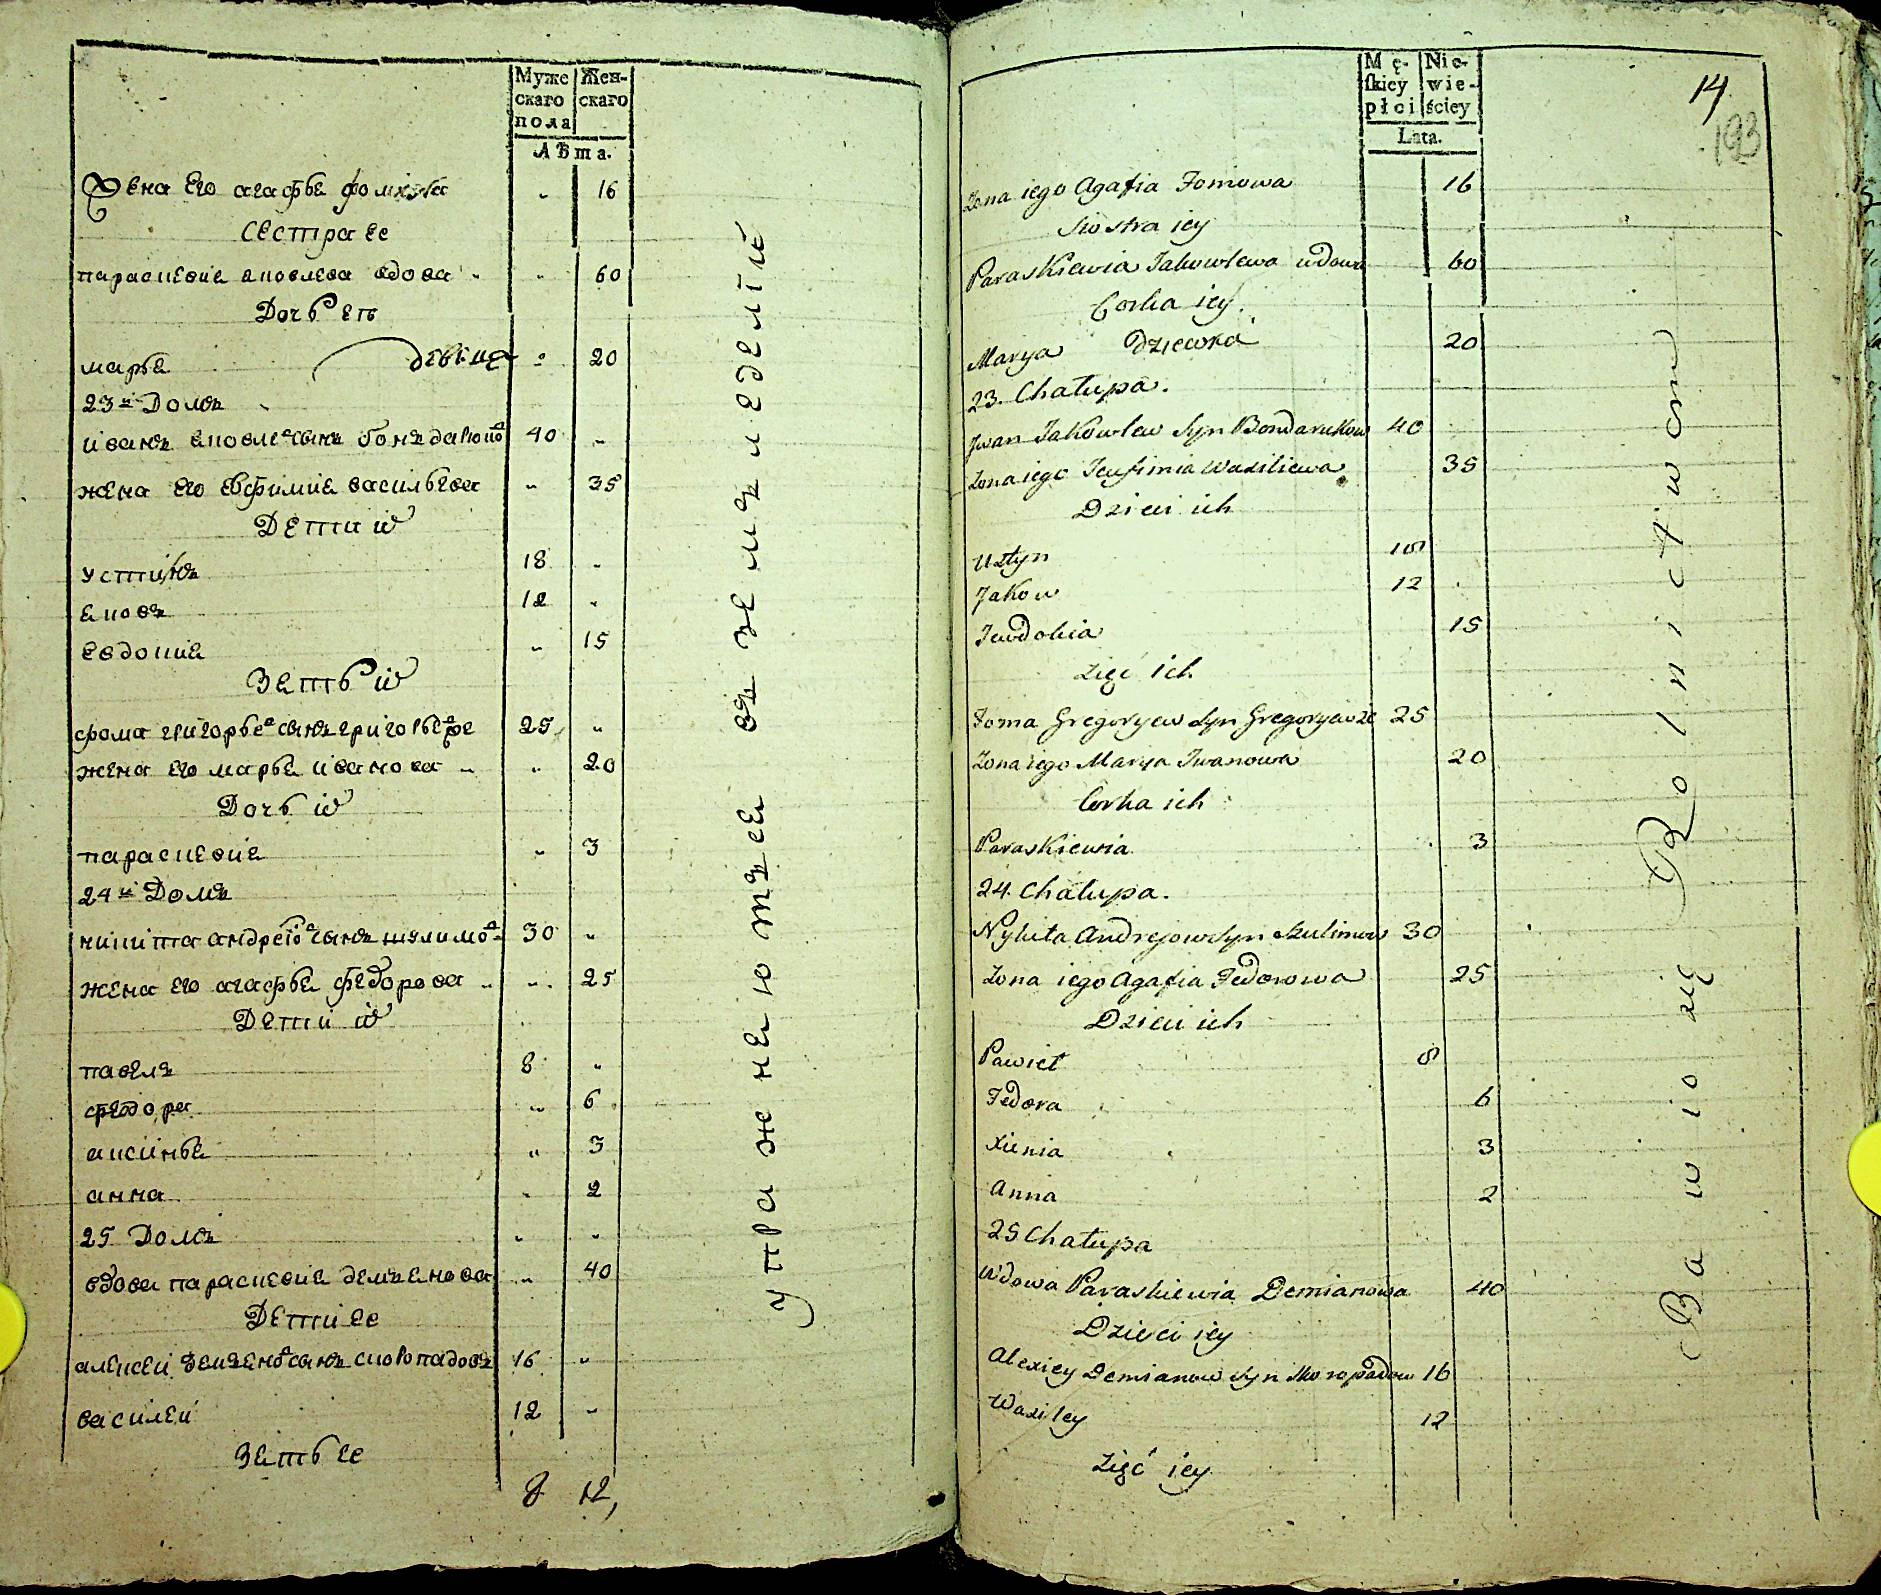 Муже
скаго
пола
Жен-
скаго
Лѣта.
Жена его агафья фомина 16
Сестра ее
параскевия яковлева вдова 60
Дочь ея
марья девица 20
23й Домъ
иванъ яковлевъ сынъ бондарюковъ 40
жена его евфимия васильева 35
Дети их
устинъ 18
яковъ 12
евдокия 15
Зять их
фома григорьевъ сынъ 25
жена его марья иванова 20
Дочь их
параскевия 3
24й Домъ
никита андреевъ сынъ шулимовъ 30
жена его агафья федорова 25
Дети их
павелъ 8
федора 6
аксинья 3
анна 2
25 Домъ
вдова параскевия демьянова 40
Дети ее
алексей демьяновъ сынъ скоропадовъ 16
василей 12
Зять ее
8 12,
упражняютъся въ земъледелии
14
193
Mę-
skiey
płci
Nie-
wie-
ściey
Lata.
Zona iego Agafia Fomowa 16
Siostra iey
Paraskiewia Jakowlewa wdowa 60
Corka iey.
Marya Dziewka 20
23. Chałupa.
Jwan Jakowlew Syn Bondarukow 40
Zona iego Jeufimia Wasiliewa 35
Dzieci ich
Ustyn 18
Jakow 12
Jewdokia 15
Zięć ich
Foma Gregoryew Syn 25
Zona iego Marya Jwanowa 20
Corka ich
Paraskiewia 3
24. Chałupa.
Nykita Andrejow Syn Szulimow 30
Zona iego Agafia Fedorowa 25
Dzieci ich
Paweł 8
Fedora 6
Xienia 3
Anna 2
25 Chałupa
Wdowa Paraskiewia Demianowa 40
Dzieci iey
Alexiey Demianow Syn Skoropadow 16
Wasiley 12
Zięć iey
Bawio się Rolnictwom